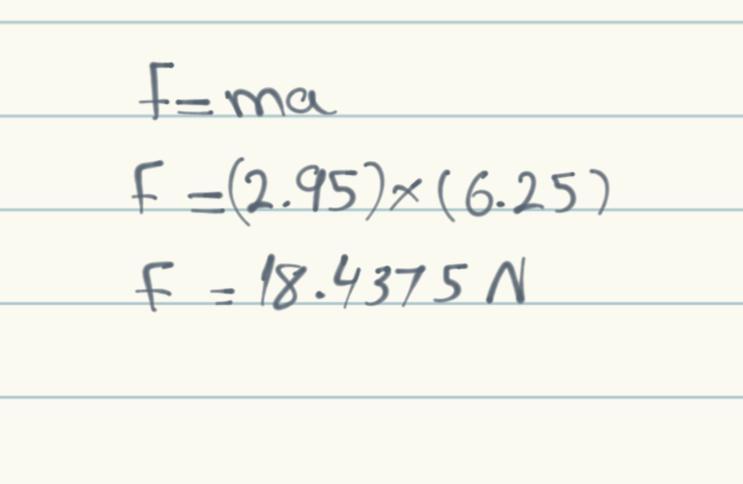 F=ma
F=(2.95)×(6.25)
F = 18.4375 N